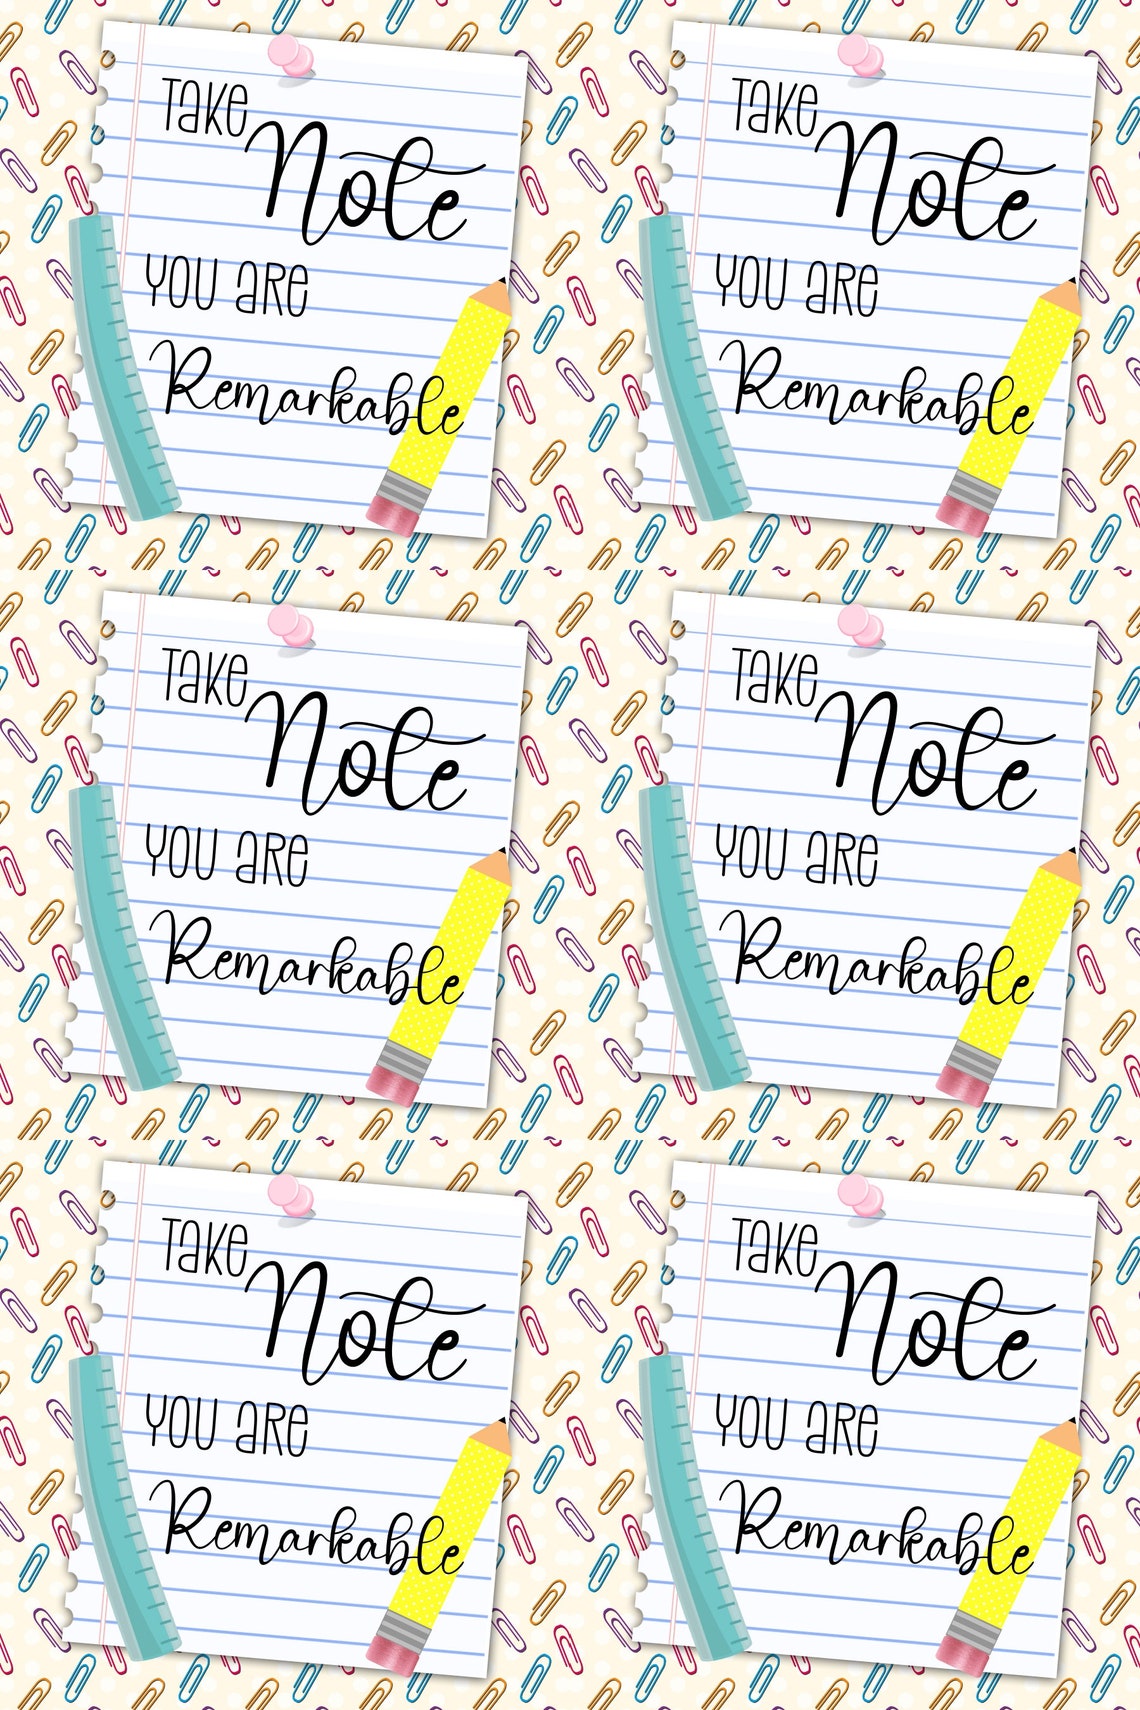 Take
Note
You are
Remarkable
Take
Note
You are
Remarkable
Take
Note
You are
Remarkable
Take
Note
You are
Remarkable
Take
Note
You are
Remarkable
Take
Note
You are
Remarkable